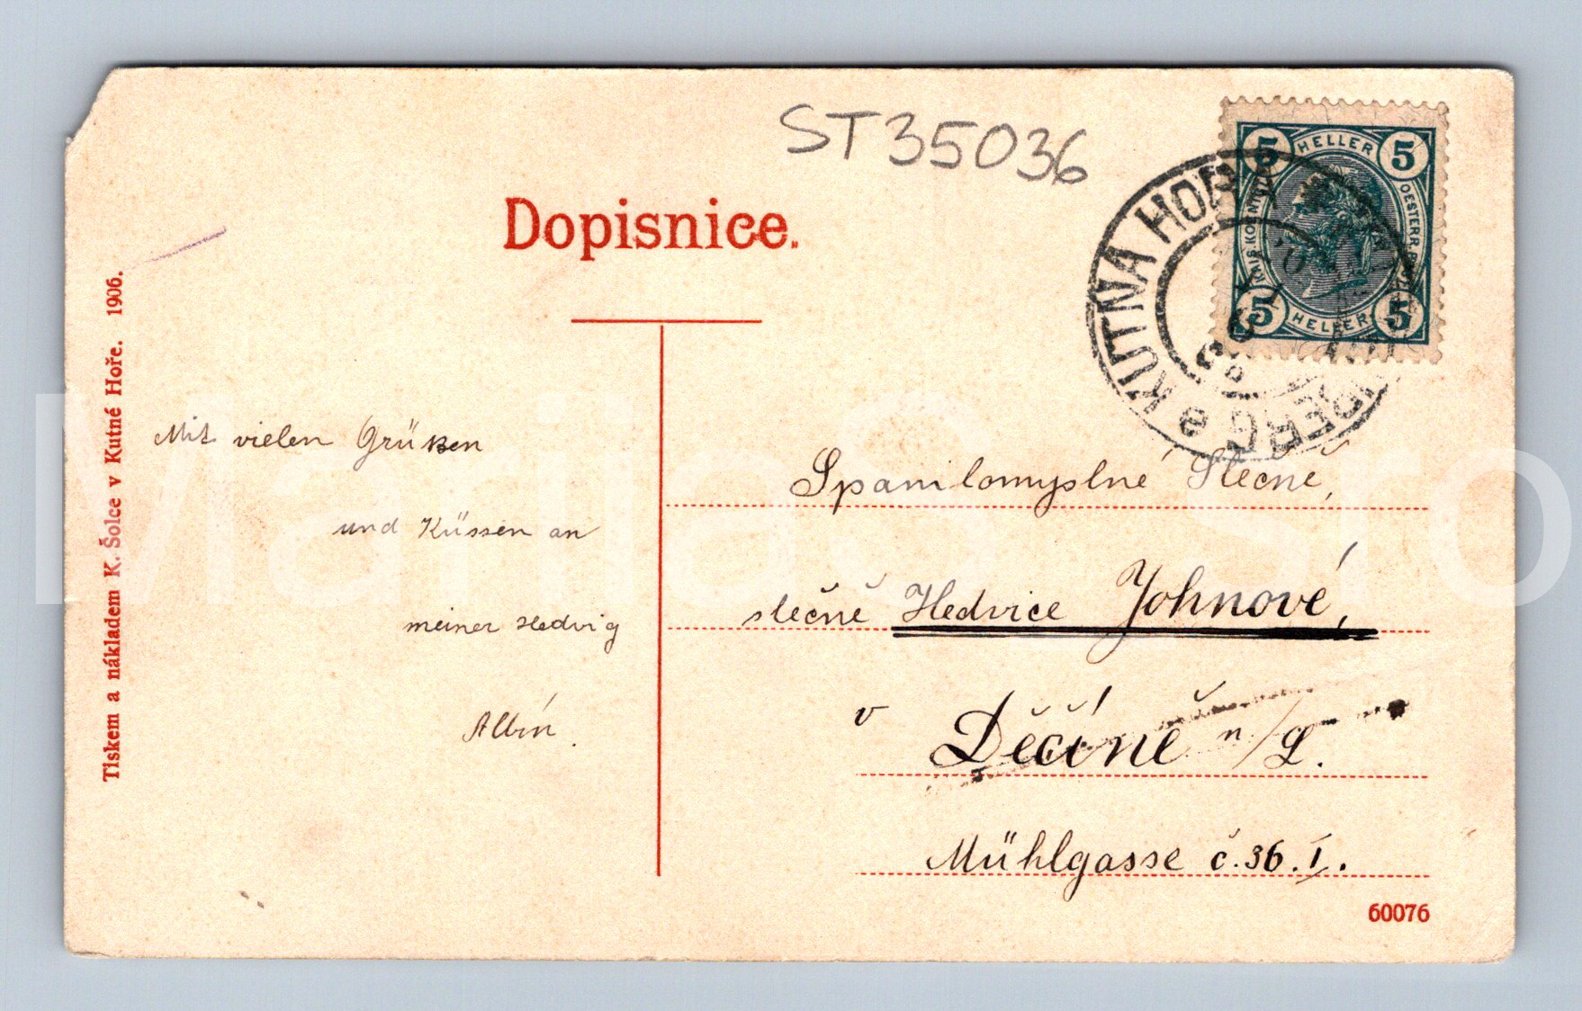 ST35036
Dopisnice.
Tiskem a nákladem K. Šolce v Kutné Hoře. 1906.
5 HELLER 5
5 HELLER 5
KUTNA HORA
Mit vielen Grüßen
und Küssen an
meiner Hedvig
Albín.
Spanilomyslné Slečně,
slečně Hedvice Johnové,
v Děčíně n/L.
Mühlgasse č. 36. I.
60076